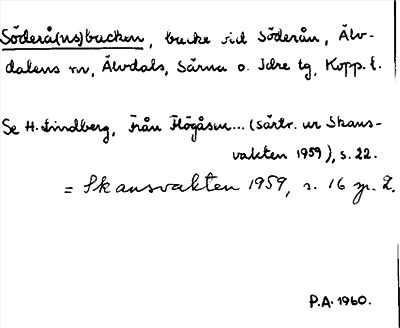 Söderå(ns)backen, backe vid Söderån, Älv-
dalens sn, Älvdals, Särna o. Idre tg, Kopp. l.
Se H. Lindberg, Från Högåsen... (särtr. ur Skans-
vakten 1959), s. 22.
= Skansvakten 1959, s. 16 sp. 2.
P.A. 1960.